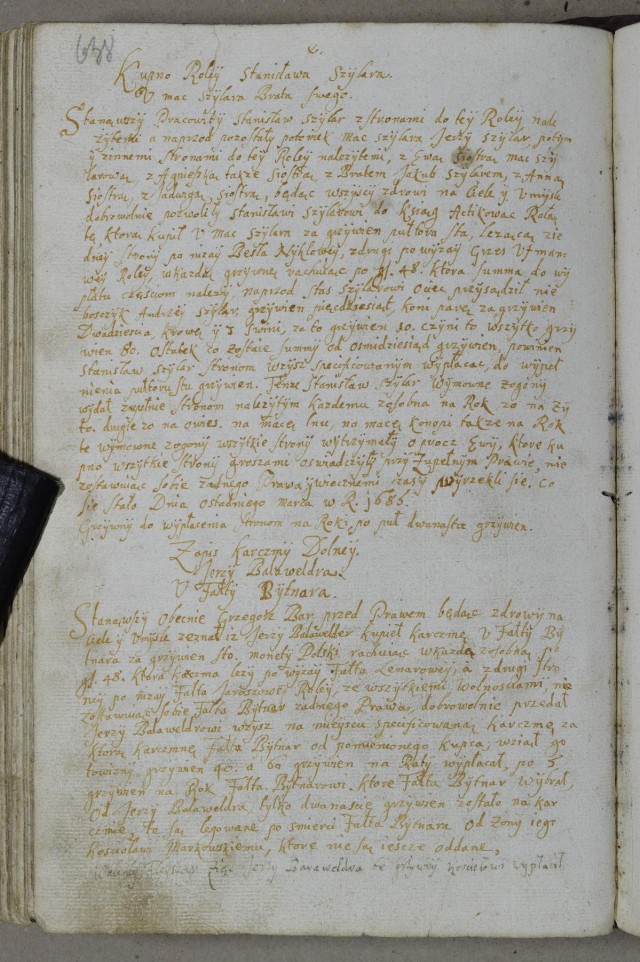 638
Kupno Roley Stanisława Szylara.
V mac Szylara Brata swego.
Stanąwszy Pracowity Stanisław Szylar z stronami do tey Roley nale
żytemi a naprzod pozostały potomek mac Szylara Jerzy Szylar, potym
y zinnemi stronami do tey Roley należytemi, z Ewą Siostrą mac Szy
larową, z Agnieszką także siostrą z Bratem Jakub Szylarem, z Anną
siostrą, z Jadwigą siostrą, będąc wszyscy zdrowi na Ciele y Vmysle
dobrowolnie pozwolily Stanisławowi Szylarowi do Ksiąg Actikowac Rolą
tę ktorą kupił V mac Szylara za grzywien pułtora sta, leżącą ze
dney strony po niżey Besta Myklowey, z drugi po wyżey Grzes
wey Roley, wkażdą grzywnę rachuiąc po gl. 48. ktora summa do wy
płatu częsciom należy, naprzod Stas Szylarowi Ociec przysądził nie
boszczyk Andrzey Szylar, grzywien pięcdziesiąt koni parę za grzywien
Dwadziescia, krowę y 3 swini, za to grzywien 10. czyni to wszytko grzy
wien 80. Ostatek co zostaie summy od osmidziesiąd grzywien, powinien
Stanisław Szylar stronom wzysz specificowanym wypłacac, do wypeł
nienia pułtorastu grzywien. Tenze Stanisław Szylar Wymowne zogony
wydał zupełnie stronom należytym każdemu zosobna na Rok 20 na ży
to. drugie 20 na owies. na macę lnu, na macę konopi także na Rok
te wymowne zogony wszytkie strony wytrzymały oprocz Ewy, ktore ku
pno wszytkie strony groszami oswiadczyły przy Zupełnym Prawie, nie
zostawuiąc Sobie żadnego Prawa y wiecznemi czasy wyrzekli się. Co
się stało Dnia ostatniego marca w R. 1685.
Grzywny do wypłacenia Stronom na Rok po puł dwanasta grzywien.
Zapis Karczmy Dolney.
Jerzy Balaweldra.
V Fałty Bytnara.
Stanąwszy Obecnie Grzegorz Bar przed Prawem będąc zdrowy na
Ciele y Vmysle zeznał iż Jerzy Balawelder kupieł karczmę V Fałty By
tnara za grzywien sto. monety Polski rachuiąc wkażdą zosobna po
gl. 48. ktora karczma leży po wyżey Fałta Lenarowey, a zdrugi stro
ny po niżey Fałta Jaroszowey Roley, ze wszytkiemi wolnosciami, nie
zostawuiąc sobie Fałta Bytnar żadnego Prawa, dobrowolnie przedał
Jerzy Balaweldrowi wzysz na mieyscu specificowaną karczmę, za
ktorą karczmnę Fałta Bytnar od pomienionego kupca, wziął go
towizny grzywien 40. a 60 grzywien na Raty wypłacał, po 5
grzywien na Rok Fałta Bytnarowi. ktore Fałta Bytnar wybrał,
Od Jerzy Balaweldra tylko dwanascie grzywien zostało na kar
czmie, te są legowane po smierci Fałta Bytnara od żony iego
kosciołowi Markowskiemu, ktore nie są iescze oddane,
Jerzy Baraweldra te grzywny kosciołowi wypłacił.